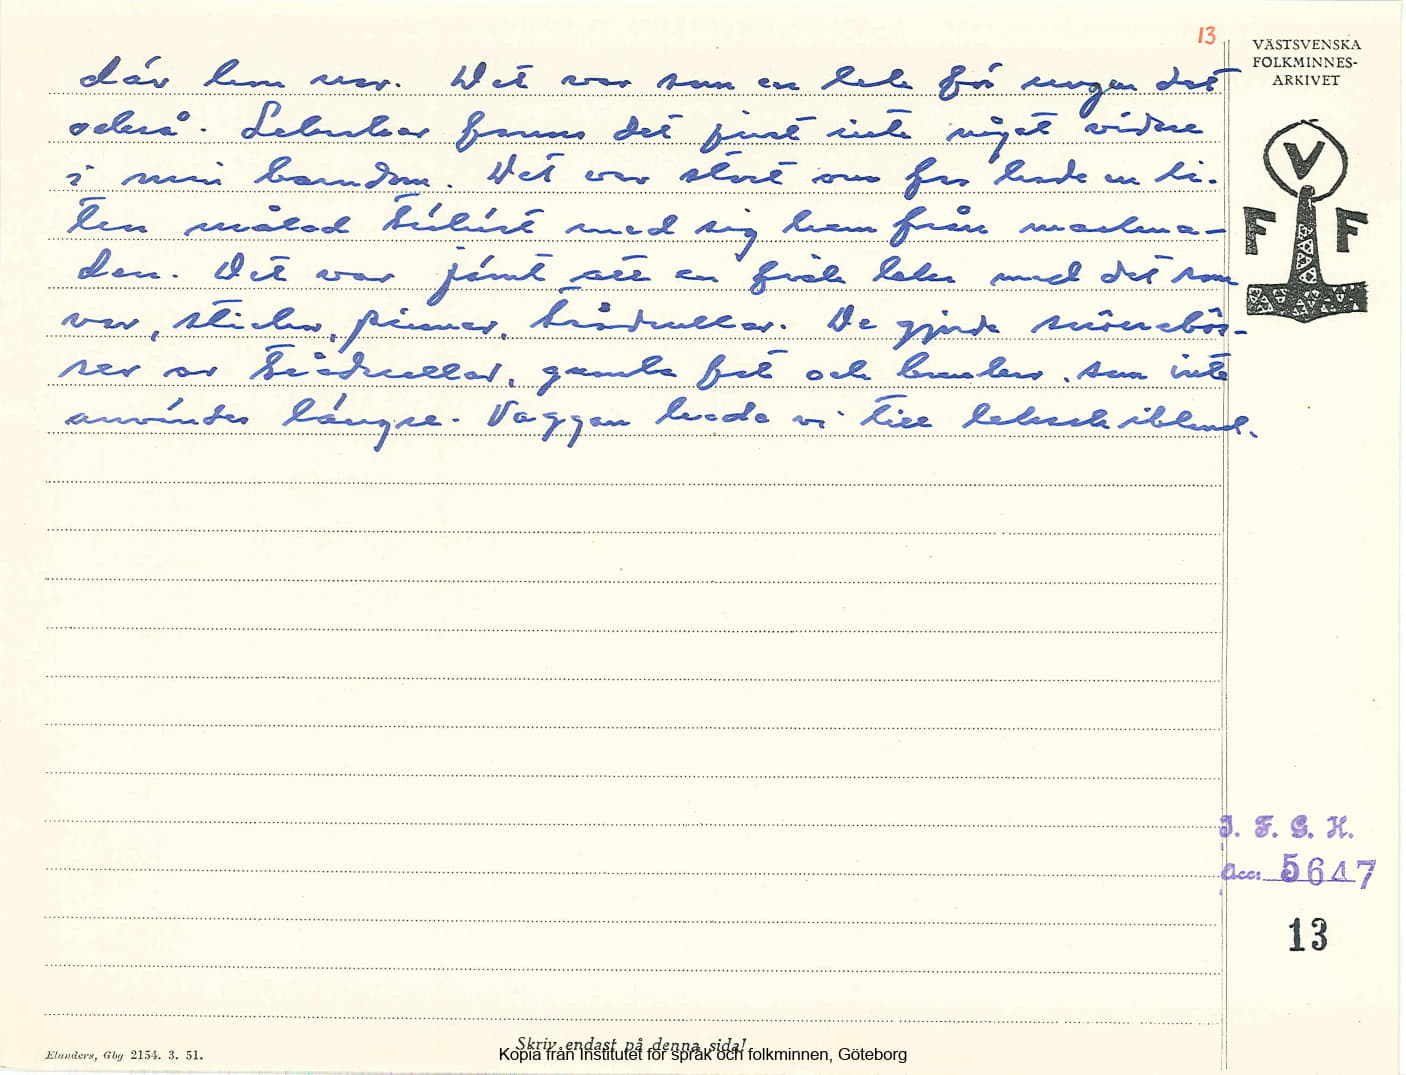 13
VÄSTSVENSKA
FOLKMINNES-
ARKIVET
där hon var. Det var som en lek för ungen det
också. Leksaker fanns det just inte något vidare
i min barndom. Det var stort om far hade en li-
ten målad med sig hem från markna-
den. Det var jämt att en fick leka med det som
var, stickor, pinnar, trådrullar. De gjorde
av trådrullar, gamla fat och burkar, som inte
användes längre. Vaggan hade vi till leksak ibland.
V
F F
J. F. G. H.
Acc: 5647
13
Skriv endast på denna sida!
Kopia från Institutet för språk och folkminnen, Göteborg
Elanders, Gbg 2154. 3. 51.